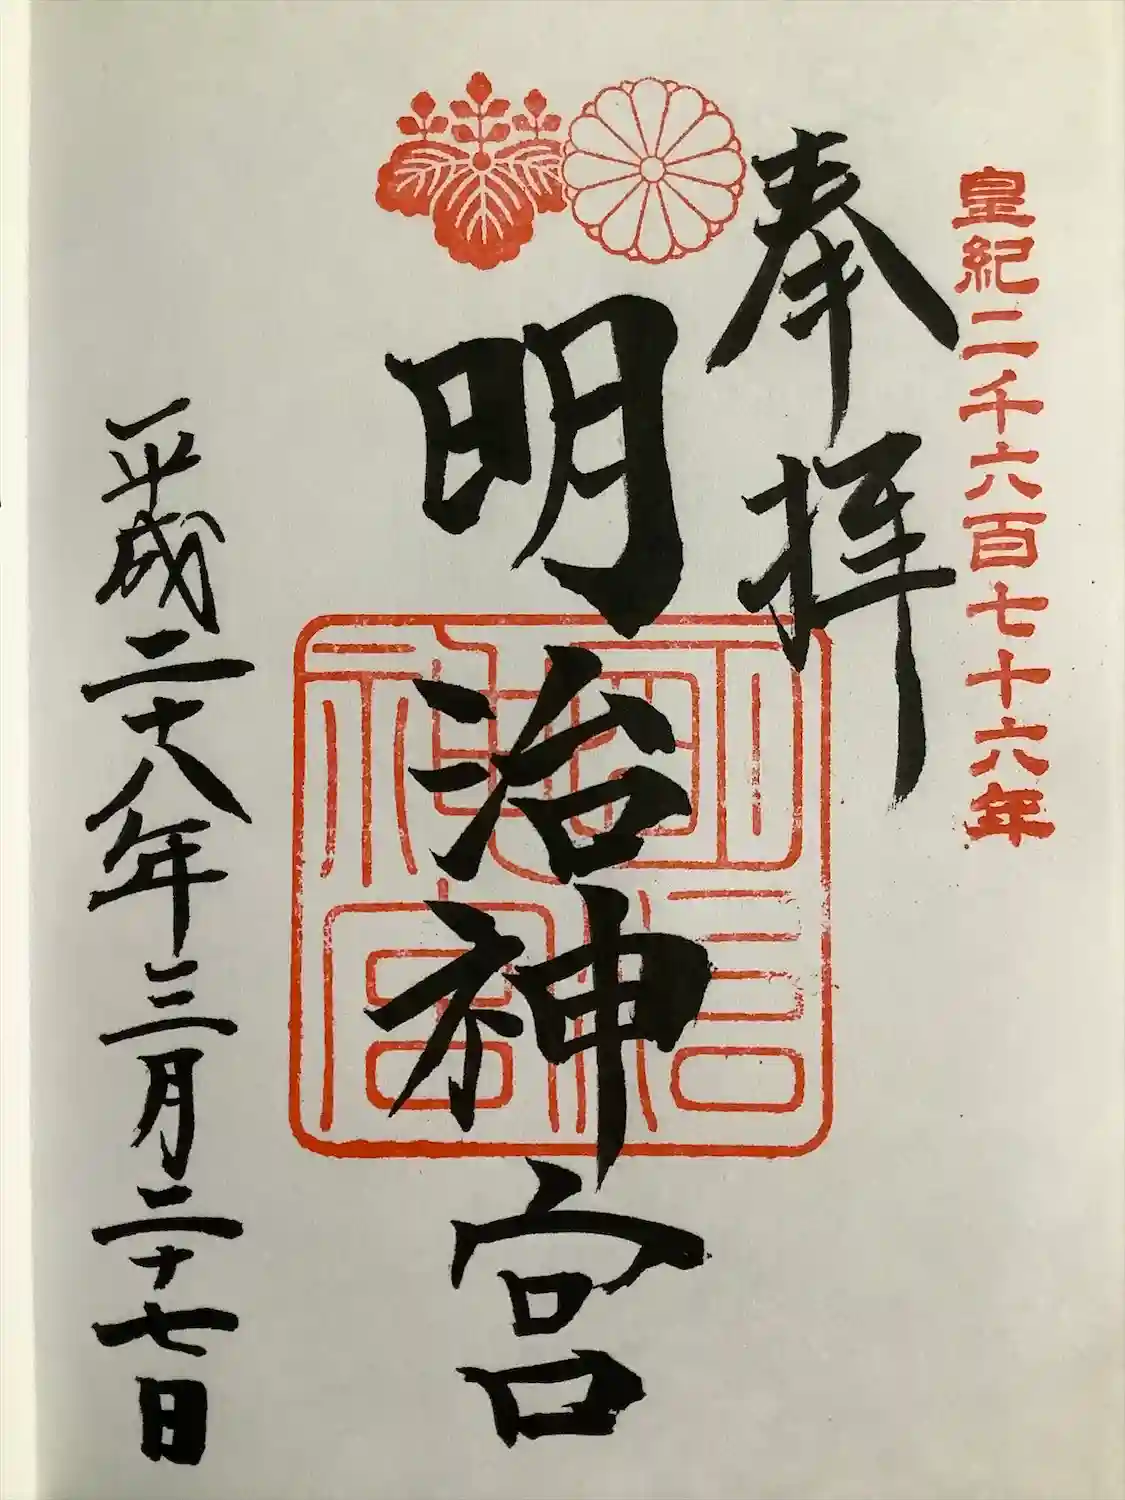 皇紀二千六百七十六年
奉拝
明治神宮
明治神宮
平成二十八年三月二十七日